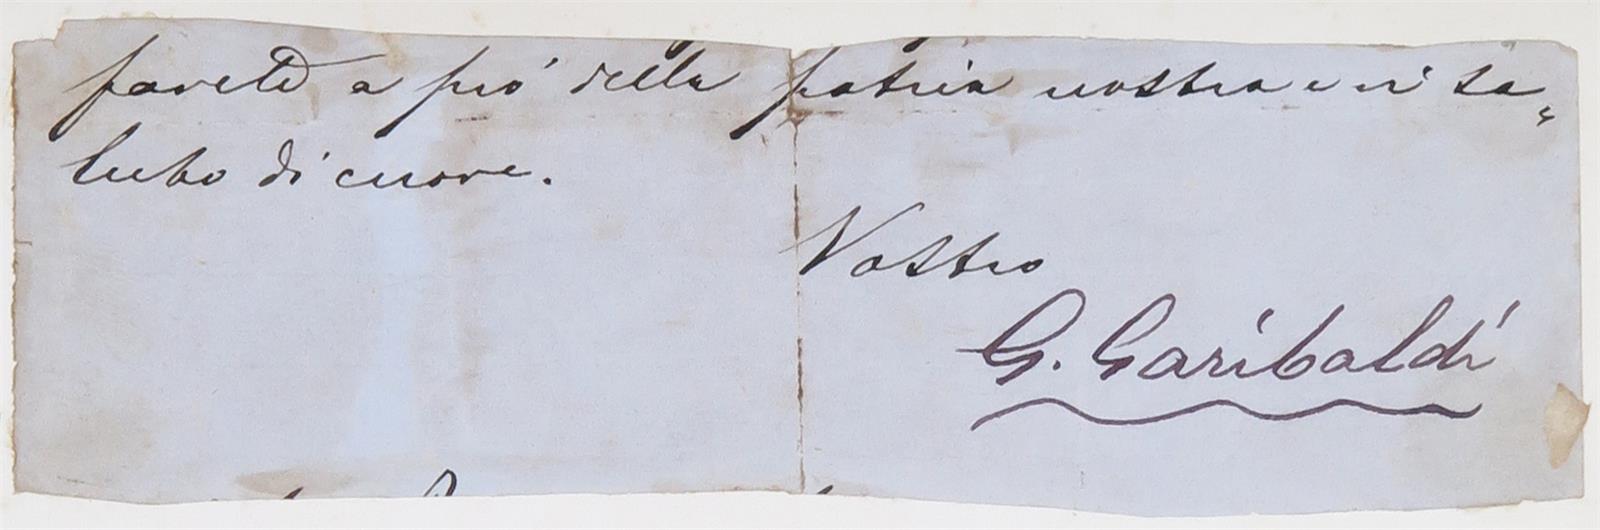 farete a pró della patria nostra e vi sa„
luto di cuore.
Vostro
G. Garibaldi